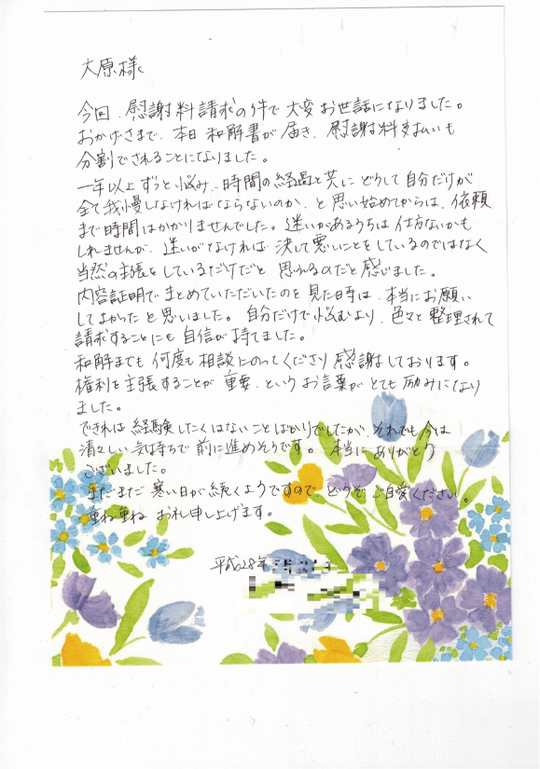 大原様
今回、慰謝料請求の件で大変お世話になりました。
おかげさまで、本日和解書が届き、慰謝料支払いも
分割でされることになりました。
一年以上ずっと悩み、時間の経過と共にどうして自分だけが
全て我慢しなければならないのか、と思い始めてからは、依頼
まで時間はかかりませんでした。迷いがあるうちは仕方ないかも
しれませんが、迷いがなければ、決して悪いことをしているのではなく
当然の主張をしているだけだと思えるのだと感じました。
内容証明でまとめていただいたのを見た時は、本当にお願い
してよかったと思いました。自分だけで悩むより、色々と整理されて
請求することにも自信が持てました。
和解までも何度も相談にのってくださり感謝しております。
権利を主張することが重要、というお言葉がとても励みになり
ました。
できれば経験したくはないことばかりでしたが、それでも今は
清々しい気持ちで前に進めそうです。本当にありがとう
ございました。
まだまだ寒い日が続くようですので、どうぞご自愛ください。
重ね重ねお礼申し上げます。
平成28年